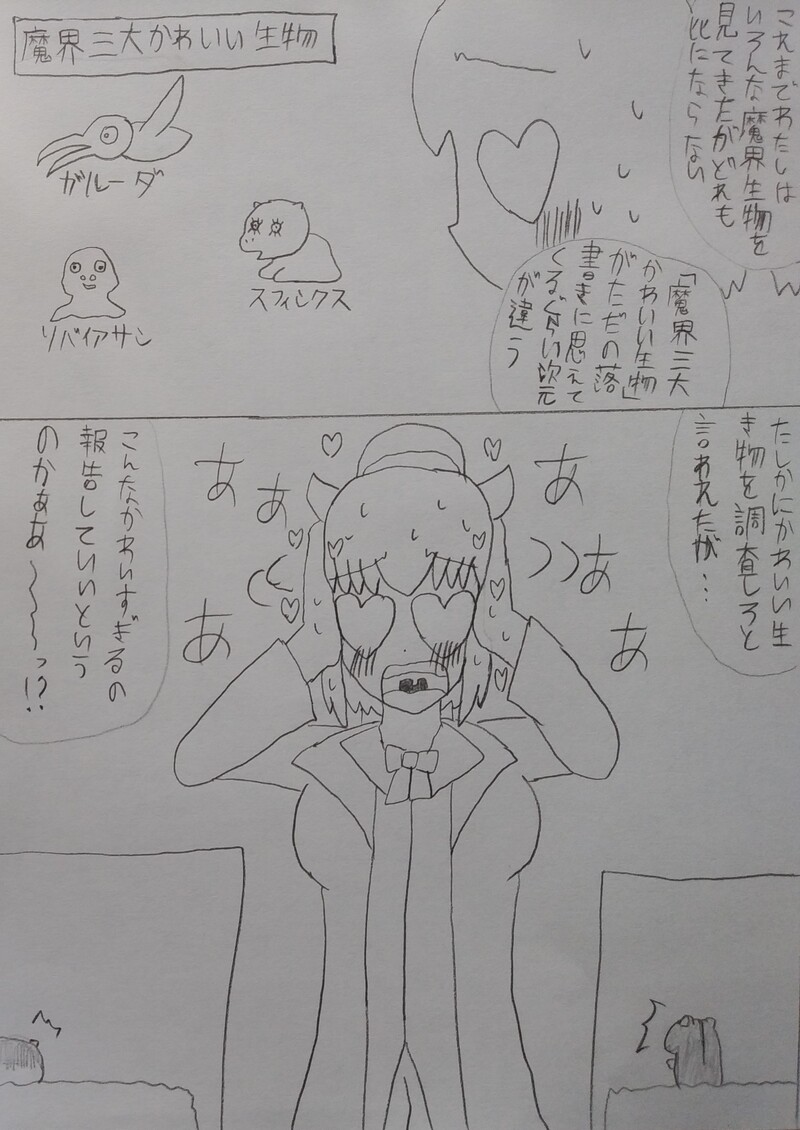 これまでわたしは
いろんな魔界生物を
見てきたがどれも
比にならない
「魔界三大
かわいい生物」
がただの落
書きに思えて
くるぐらい次元
が違う
魔界三大かわいい生物
ガルーダ
スフィンクス
リバイアサン
たしかにかわいい生
き物を調査しろと
言われたが…
あ
あ
あ
あ
あ
あ
こんなかわいすぎるの
報告していいという
のかぁあ〜〜〜っ!?